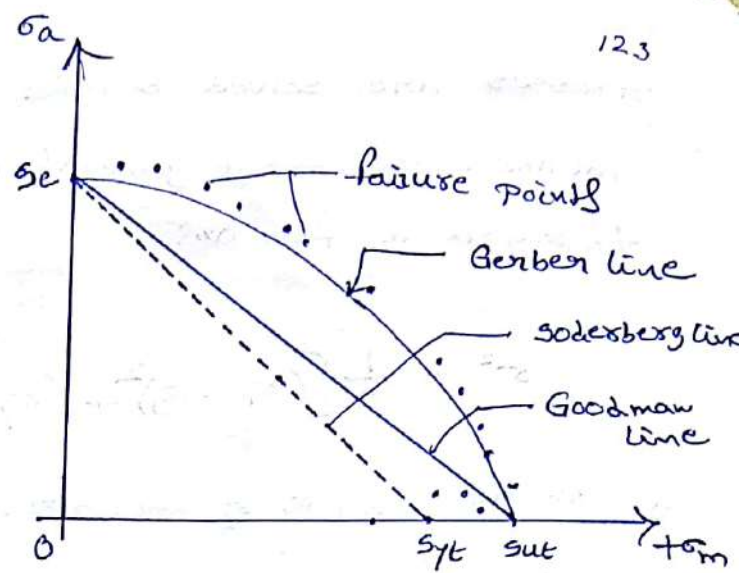 σa
123
Se
failure points
Gerber line
Soderberg line
Goodman
line
0
Syt
Sut
+σm